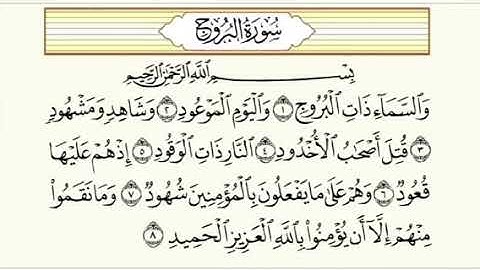 سُورَةُ الْبُرُوجِ
بِسْمِ اللَّهِ الرَّحْمَٰنِ الرَّحِيمِ
وَالسَّمَآءِ ذَاتِ الْبُرُوجِ ١ وَالْيَوْمِ الْمَوْعُودِ ٢ وَشَاهِدٍ وَمَشْهُودٍ
٣ قُتِلَ أَصْحَٰبُ الْأُخْدُودِ ٤ النَّارِ ذَاتِ الْوَقُودِ ٥ إِذْ هُمْ عَلَيْهَا
قُعُودٌ ٦ وَهُمْ عَلَىٰ مَا يَفْعَلُونَ بِالْمُؤْمِنِينَ شُهُودٌ ٧ وَمَا نَقَمُوا۟
مِنْهُمْ إِلَّآ أَن يُؤْمِنُوا۟ بِاللَّهِ الْعَزِيزِ الْحَمِيدِ ٨